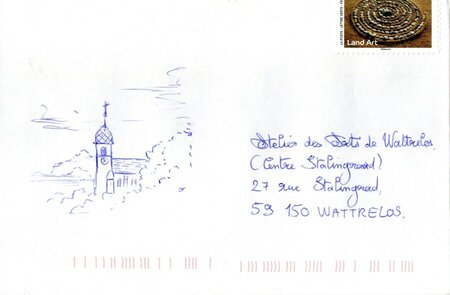 Land Art
Atelier des Arts de Wattrelos
(Centre Stalingrad)
27 rue Stalingrad,
59 150 WATTRELOS.